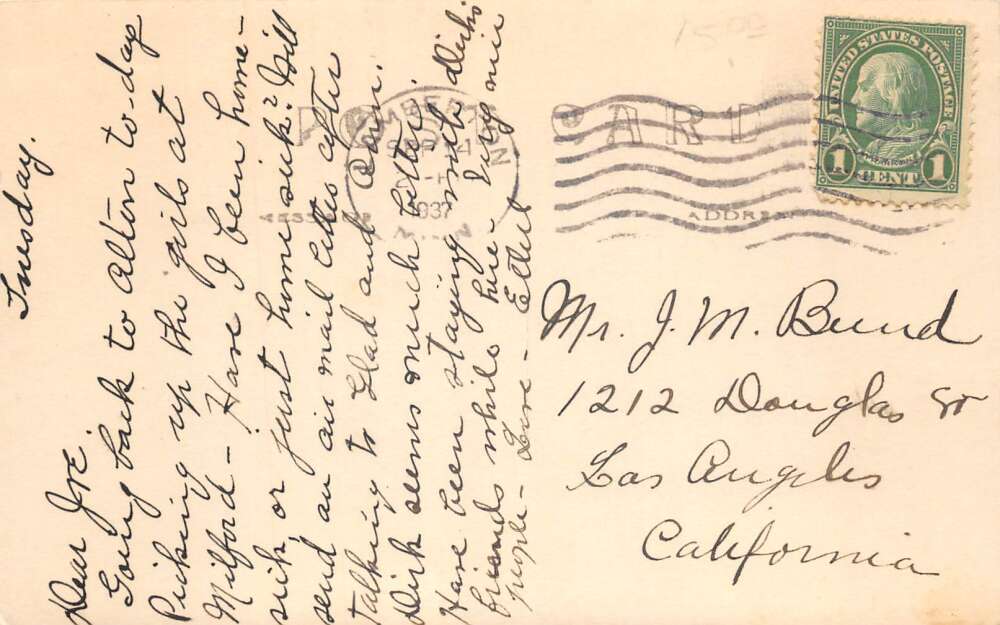 Tuesday.
Dear Joe
Going back to Alton to-day
Picking up the girls at
Milford - Have I been home-
sick, or just home sick? Will
send an air mail letter after
talking to Glad and Carr.
Dick seems much better.
Have been staying with Dick's
friends while here - Very nice
people - Love - Ethel
15.00
POST CARD
SEP 14
1937
MINN
MESSAGE
ADDRESS
UNITED STATES POSTAGE
FRANKLIN
1 CENT 1
Mr. J. M. Bund
1212 Douglas St
Los Angeles
California